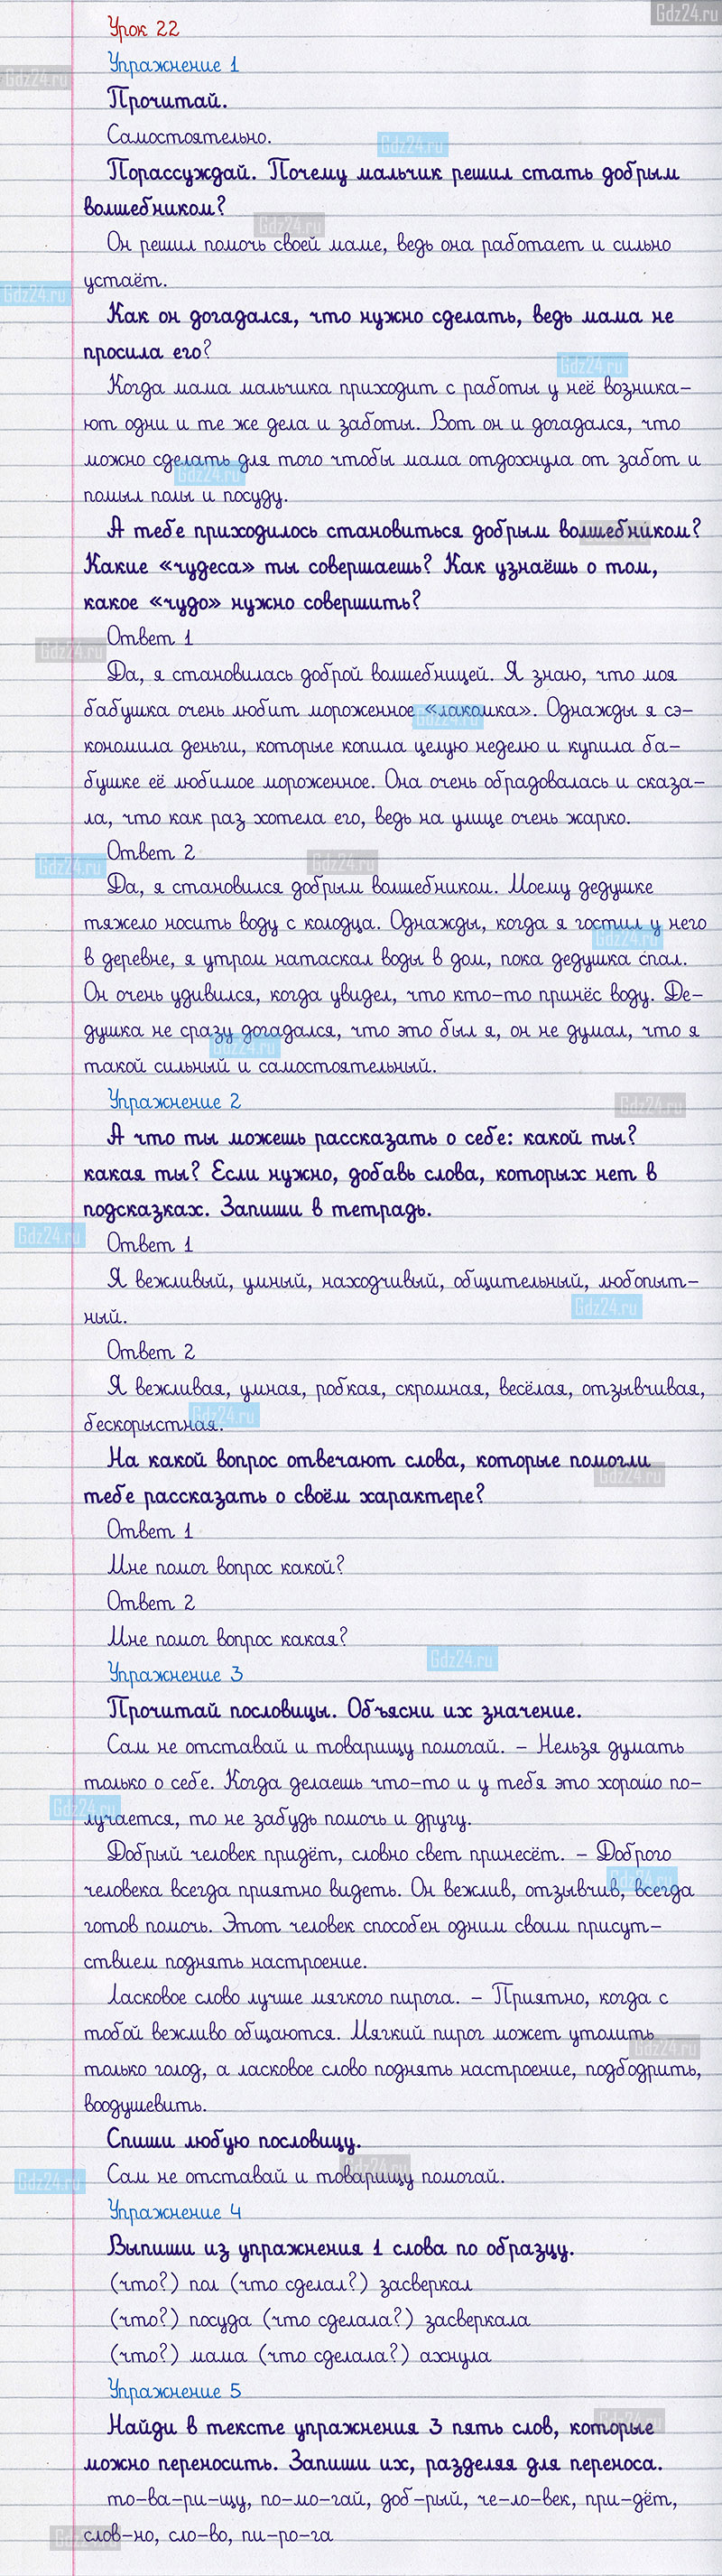 Gdz24.ru
Урок 22
Упражнение 1
Gdz24.ru
Прочитай.
Самостоятельно.
Gdz24.ru
Порассуждай. Почему мальчик решил стать добрым
волшебником?
Gdz24.ru
Он решил помочь своей маме, ведь она работает и сильно
устаёт.
Gdz24.ru
Как он догадался, что нужно сделать, ведь мама не
просила его?
Gdz24.ru
Когда мама мальчика приходит с работы у неё возника-
ют одни и те же дела и заботы. Вот он и догадался, что
можно сделать для того чтобы мама отдохнула от забот и
Gdz24.ru
помыл полы и посуду.
А тебе приходилось становиться добрым волшебником?
Gdz24.ru
Какие «чудеса» ты совершаешь? Как узнаёшь о том,
какое «чудо» нужно совершить?
Ответ 1
Gdz24.ru
Да, я становилась доброй волшебницей. Я знаю, что моя
бабушка очень любит мороженное «лакомка». Однажды я сэ-
Gdz24.ru
кономила деньги, которые копила целую неделю и купила ба-
бушке её любимое мороженное. Она очень обрадовалась и сказа-
ла, что как раз хотела его, ведь на улице очень жарко.
Ответ 2
Gdz24.ru
Gdz24.ru
Да, я становился добрым волшебником. Моему дедушке
тяжело носить воду с колодца. Однажды, когда я гостил у него
Gdz24.ru
в деревне, я утром натаскал воды в дом, пока дедушка спал.
Он очень удивился, когда увидел, что кто-то принёс воду. Де-
душка не сразу догадался, что это был я, он не думал, что я
Gdz24.ru
такой сильный и самостоятельный.
Упражнение 2
Gdz24.ru
А что ты можешь рассказать о себе: какой ты?
какая ты? Если нужно, добавь слова, которых нет в
подсказках. Запиши в тетрадь.
Gdz24.ru
Ответ 1
Я вежливый, умный, находчивый, общительный, любопыт-
Gdz24.ru
ный.
Ответ 2
Я вежливая, умная, робкая, скромная, весёлая, отзывчивая,
Gdz24.ru
бескорыстная.
На какой вопрос отвечают слова, которые помогли
Gdz24.ru
тебе рассказать о своём характере?
Ответ 1
Мне помог вопрос какой?
Ответ 2
Мне помог вопрос какая?
Gdz24.ru
Упражнение 3
Прочитай пословицы. Объясни их значение.
Сам не отставай и товарищу помогай. – Нельзя думать
только о себе. Когда делаешь что-то и у тебя это хорошо по-
Gdz24.ru
лучается, то не забудь помочь и другу.
Добрый человек придёт, словно свет принесёт. – Доброго
Gdz24.ru
человека всегда приятно видеть. Он вежлив, отзывчив, всегда
готов помочь. Этот человек способен одним своим присут-
ствием поднять настроение.
Ласковое слово лучше мягкого пирога. – Приятно, когда с
тобой вежливо общаются. Мягкий пирог может утолить
Gdz24.ru
только голод, а ласковое слово поднять настроение, подбодрить,
воодушевить.
Спиши любую пословицу.
Gdz24.ru
Gdz24.ru
Сам не отставай и товарищу помогай.
Упражнение 4
Выпиши из упражнения 1 слова по образцу.
(что?) пол (что сделал?) засверкал
(что?) посуда (что сделала?) засверкала
(что?) мама (что сделала?) ахнула
Упражнение 5
Gdz24.ru
Найди в тексте упражнения 3 пять слов, которые
можно переносить. Запиши их, разделяя для переноса.
то-ва-ри-щу, по-мо-гай, доб-рый, че-ло-век, при-дёт,
Gdz24.ru
слов-но, сло-во, пи-ро-га